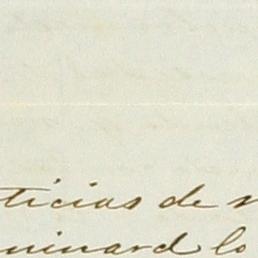 ticias de
minará lo